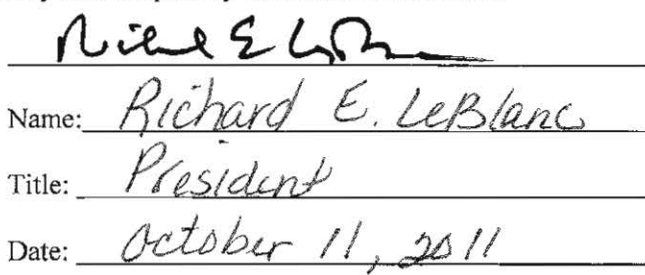 Richard E LeBlanc
Name: Richard E. LeBlanc
Title: President
Date: October 11, 2011